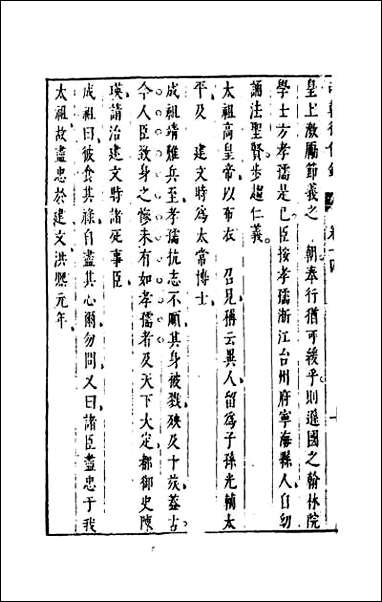 皇上激勵節義之　朝奉行猶可緩乎則遜國之翰林院
學士方孝孺是已臣按孝孺浙江台州府寧海縣人自幼
誦法聖賢步趨仁義
太祖高皇帝以布衣　召見稱云異人留爲子孫光輔太
平及　建文時爲太常博士
成祖靖難兵至孝孺抗志不順其身被戮殃及十族蓋古
今人臣致身之慘未有如孝孺者及天下大定都御史陳
瑛請治建文時諸死事臣
成祖曰彼食其祿自盡其心爾勿問又曰諸臣盡忠于我
太祖故盡忠於建文洪熙元年